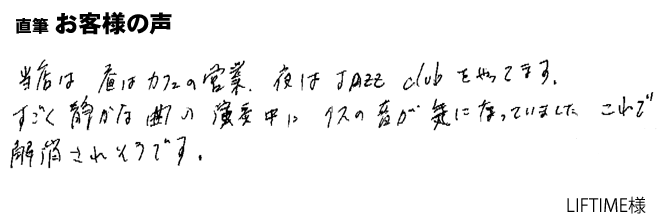 直筆 お客様の声
当店は 昼はカフェの営業. 夜はJAZZ clubをやってます.
すごく静かな曲の演奏中に イスの音が気になっていました これで
解消されそうです.
LIFTIME様